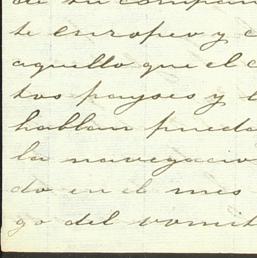 de su compan
te europeo y c
aquello que el c
tos payses y l
hablan pueda
la navegacio
do en el mes
go del vomit